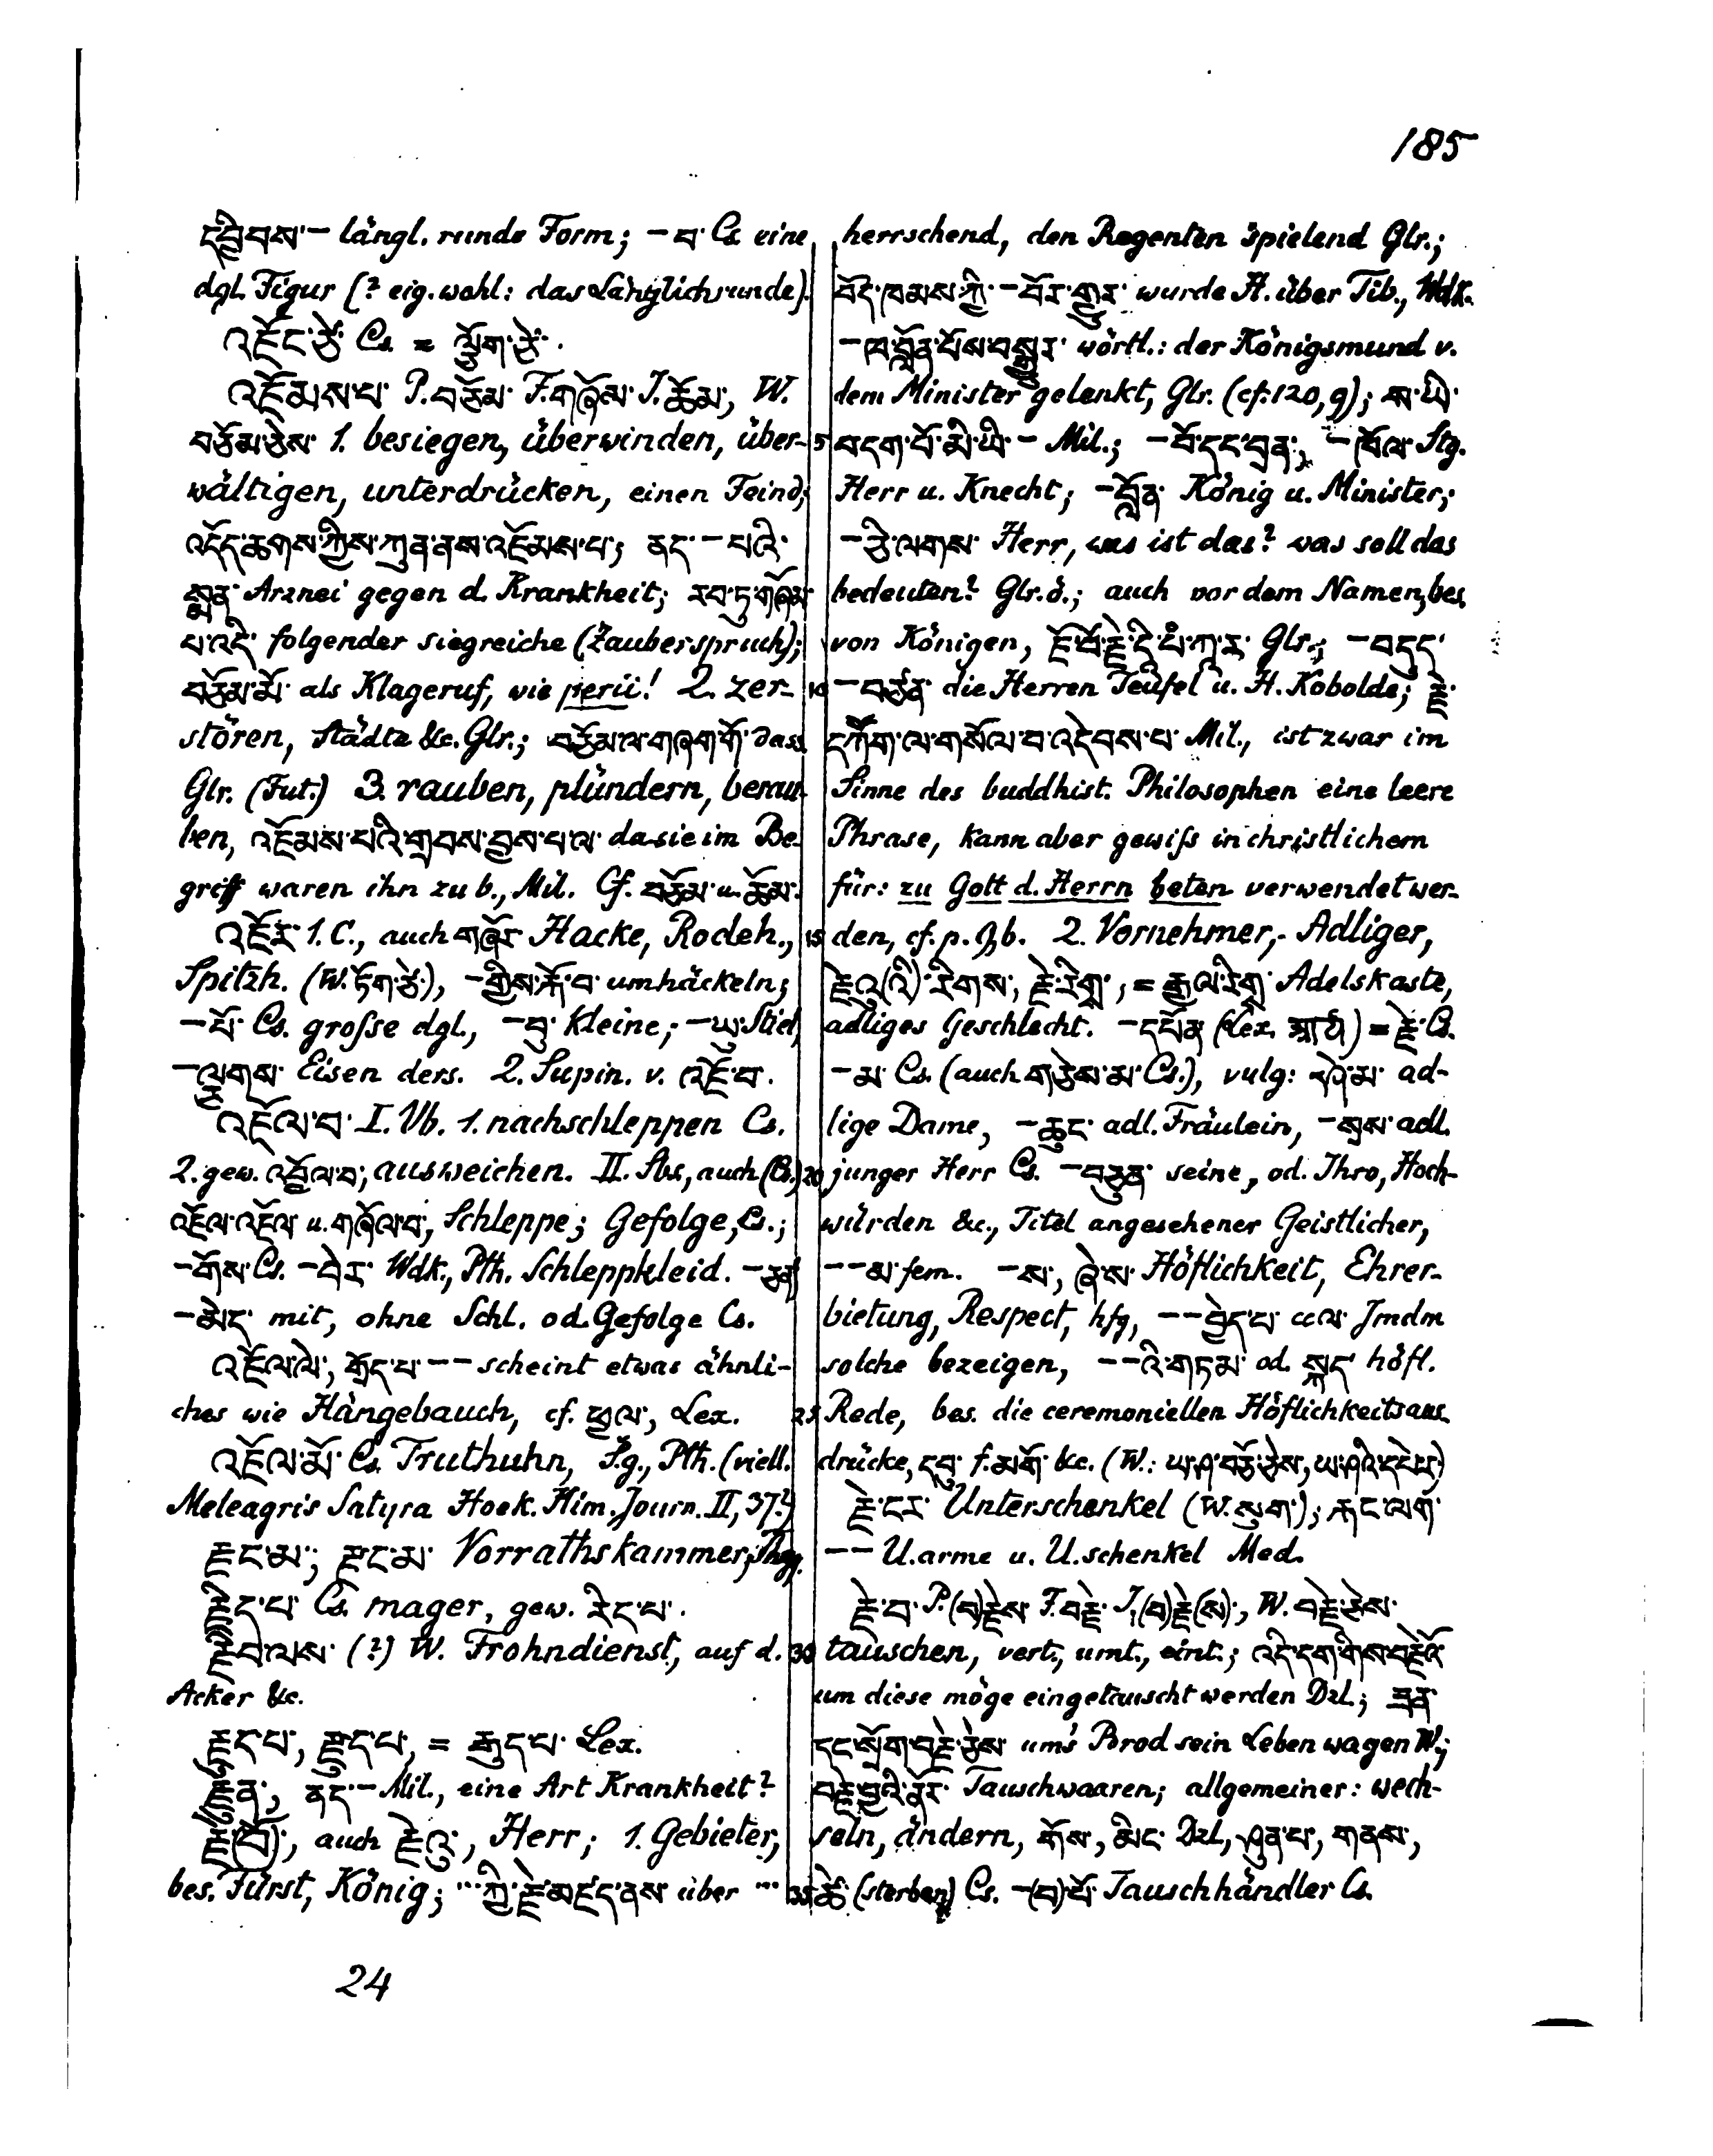 185
དབྱིབས་– längl. runde Form; –བ་ Cs. eine
dgl. Figur (? eig. wohl: das Länglichrunde).
འཇོང་ཙེ་ Cs. = ལྕོག་ཙེ་.
འཇོམས་པ་ P. བཅོམ་ F. གཞོམ་ I. ཆོམ་, W.
བཅོམ་ཅེས་ 1. besiegen, überwinden, über-
wältigen, unterdrücken, einen Feind;
འདོད་ཆགས་ཀྱིས་ཀུན་ནས་འཇོམས་པ་; ནད་–པའི་
སྨན་ Arznei gegen d. Krankheit; རབ་ཏུ་གཞོམ་
པ་འདི་ folgender siegreiche (Zauberspruch);
བཅོམ་མོ་ als Klageruf, wie perii! 2. zer-
stören, Städte &c. Glr.; བཅོམ་ལ་གཞག་གོ་ dass.
Glr. (Fut.) 3. rauben, plündern, berau-
ben, འཇོམས་པའི་གྲབས་བྱས་པ་ལ་ da sie im Be-
griff waren ihn zu b., Mil. Cf. བཅོམ་ u. ཆོམ་.
འཇོར་ 1. C., auch གཞོར་ Hacke, Rodeh.,
Spitzh. (W. ཏོག་ཙེ་), –གྱིས་རྐོ་བ་ umhäckeln;
–པོ་ Cs. grosse dgl., –བུ་ kleine; –ཡུ་ Stiel,
–ལྕགས་ Eisen ders. 2. Supin. v. འཇོ་བ་.
འཇོལ་བ་ I. Vb. 1. nachschleppen Cs.
2. gew. འབྱོལ་བ་, ausweichen. II. Sbs., auch (Cs.)
འཇོལ་འཇོལ་ u. གཞོལ་བ་, Schleppe; Gefolge, Cs.;
–གོས་ Cs. –བེར་ Wdk., Pth. Schleppkleid. –ཅན་
–མེད་ mit, ohne Schl. od. Gefolge Cs.
འཇོལ་ལེ་, གྲོད་པ་–– scheint etwas ähnli-
ches wie Hängebauch, cf. ཕྱལ་, Lex.
འཇོལ་མོ་ Cs. Truthuhn, S.g., Pth. (viell.
Meleagris Satyra Hook. Him. Journ. II, 37?)
རྫང་མ་; རྫང་མ་ Vorrathskammer;
རྗིད་པ་ Cs. mager, gew. རིད་པ་.
རྗིབ་ལས་ (?) W. Frohndienst, auf d.
Acker &c.
རྗུད་པ་, རྫུད་པ་, = རྒུད་པ་ Lex.
རྗུན་, ནད་– Mil., eine Art Krankheit?
རྗེ་(བོ་), auch རྗེའུ་, Herr; 1. Gebieter,
bes. Fürst, König; ... ཀྱི་རྗེ་མཛད་ནས་ über ...
24
herrschend, den Regenten spielend Glr.;
བོད་ཁམས་ཀྱི་–བོར་གྱུར་ wurde H. über Tib., Wdk.
–ཁ་བློན་པོས་བསྒྱུར་ wörtl.: der Königsmund v.
dem Minister gelenkt, Glr. (cf. 120, 9); ས་ཡི་
5 བདག་པོ་མི་ཡི་– Mil.; –བོ་དང་བྲན་, –ཁོལ་ Stg.
Herr u. Knecht; –བློན་ König u. Minister;
–ཅི་ལགས་ Herr, was ist das? was soll das
bedeuten? Glr. ö.; auch vor dem Namen, bes.
von Königen, ཇོ་བོ་རྗེ་དི་པཾ་ཀ་ར་ Glr.; –བདུད་
10 –བཙན་ die Herren Teufel u. H. Kobolde; རྗེ་
དཀོན་ཅོག་ལ་གསོལ་བ་འདེབས་པ་ Mil., ist zwar im
Sinne des buddhist. Philosophen eine leere
Phrase, kann aber gewiss in christlichem
für: zu Gott d. Herrn beten verwendet wer-
15 den, cf. p. 9, b. 2. Vornehmer, Adliger,
རྗེའུ་(འི་)་རིགས་, རྗེ་རིགས་, = རྒྱལ་རིགས་ Adelskaste,
adliges Geschlecht. –དཔོན་ (Lex. ) = རྗེ་ Cs.
–མ་ Cs. (auch གཅེས་མ་ Cs.), vulg: ཞེ་མ་ ad-
lige Dame, –ཆུང་ adl. Fräulein, –སྲས་ adl.
20 junger Herr Cs. –བཙུན་ seine, od. Ihro, Hoch-
würden &c., Titel angesehener Geistlicher,
––མ་ fem. –ས་, ཞེ་ས་ Höflichkeit, Ehrer-
bietung, Respect, hfg, ––བྱེད་པ་ cc ལ་ Jmdm
solche bezeigen, ––འི་གཏམ་ od. སྐད་ höfl.
25 Rede, bes. die ceremoniellen Höflichkeitsaus-
drücke, དབུ་ f. མགོ་ &c. (W.: ཡ་ཤ་བཅོ་ཅེས་, ཡ་ཤའི་དཔེ་ར་)
རྗེ་ངར་ Unterschenkel (W. སུག་); རྐང་ལག་
–– U.arme u. U.schenkel Med.
རྗེ་བ་ P. (བ)རྗེས་ F. བརྗེ་ I. (བ)རྗེ་(ས)་, W. བརྗེ་ཅེས་
30 tauschen, vert., umt., eint.; འདི་དག་གིས་བརྗེའོ་
um diese möge eingetauscht werden Dzl.; ཟན་
དང་སྲོག་བརྗེ་ཅེས་ ums Brod sein Leben wagen W.;
བརྗེ་བྱའི་ནོར་ Tauschwaaren; allgemeiner: wech-
seln, ändern, གོས་, མིང་ Dzl., ཤུན་པ་, གནས་,
35 ཚེ་ (sterben) Cs. –(བ)་པོ་ Tauschhändler Cs.